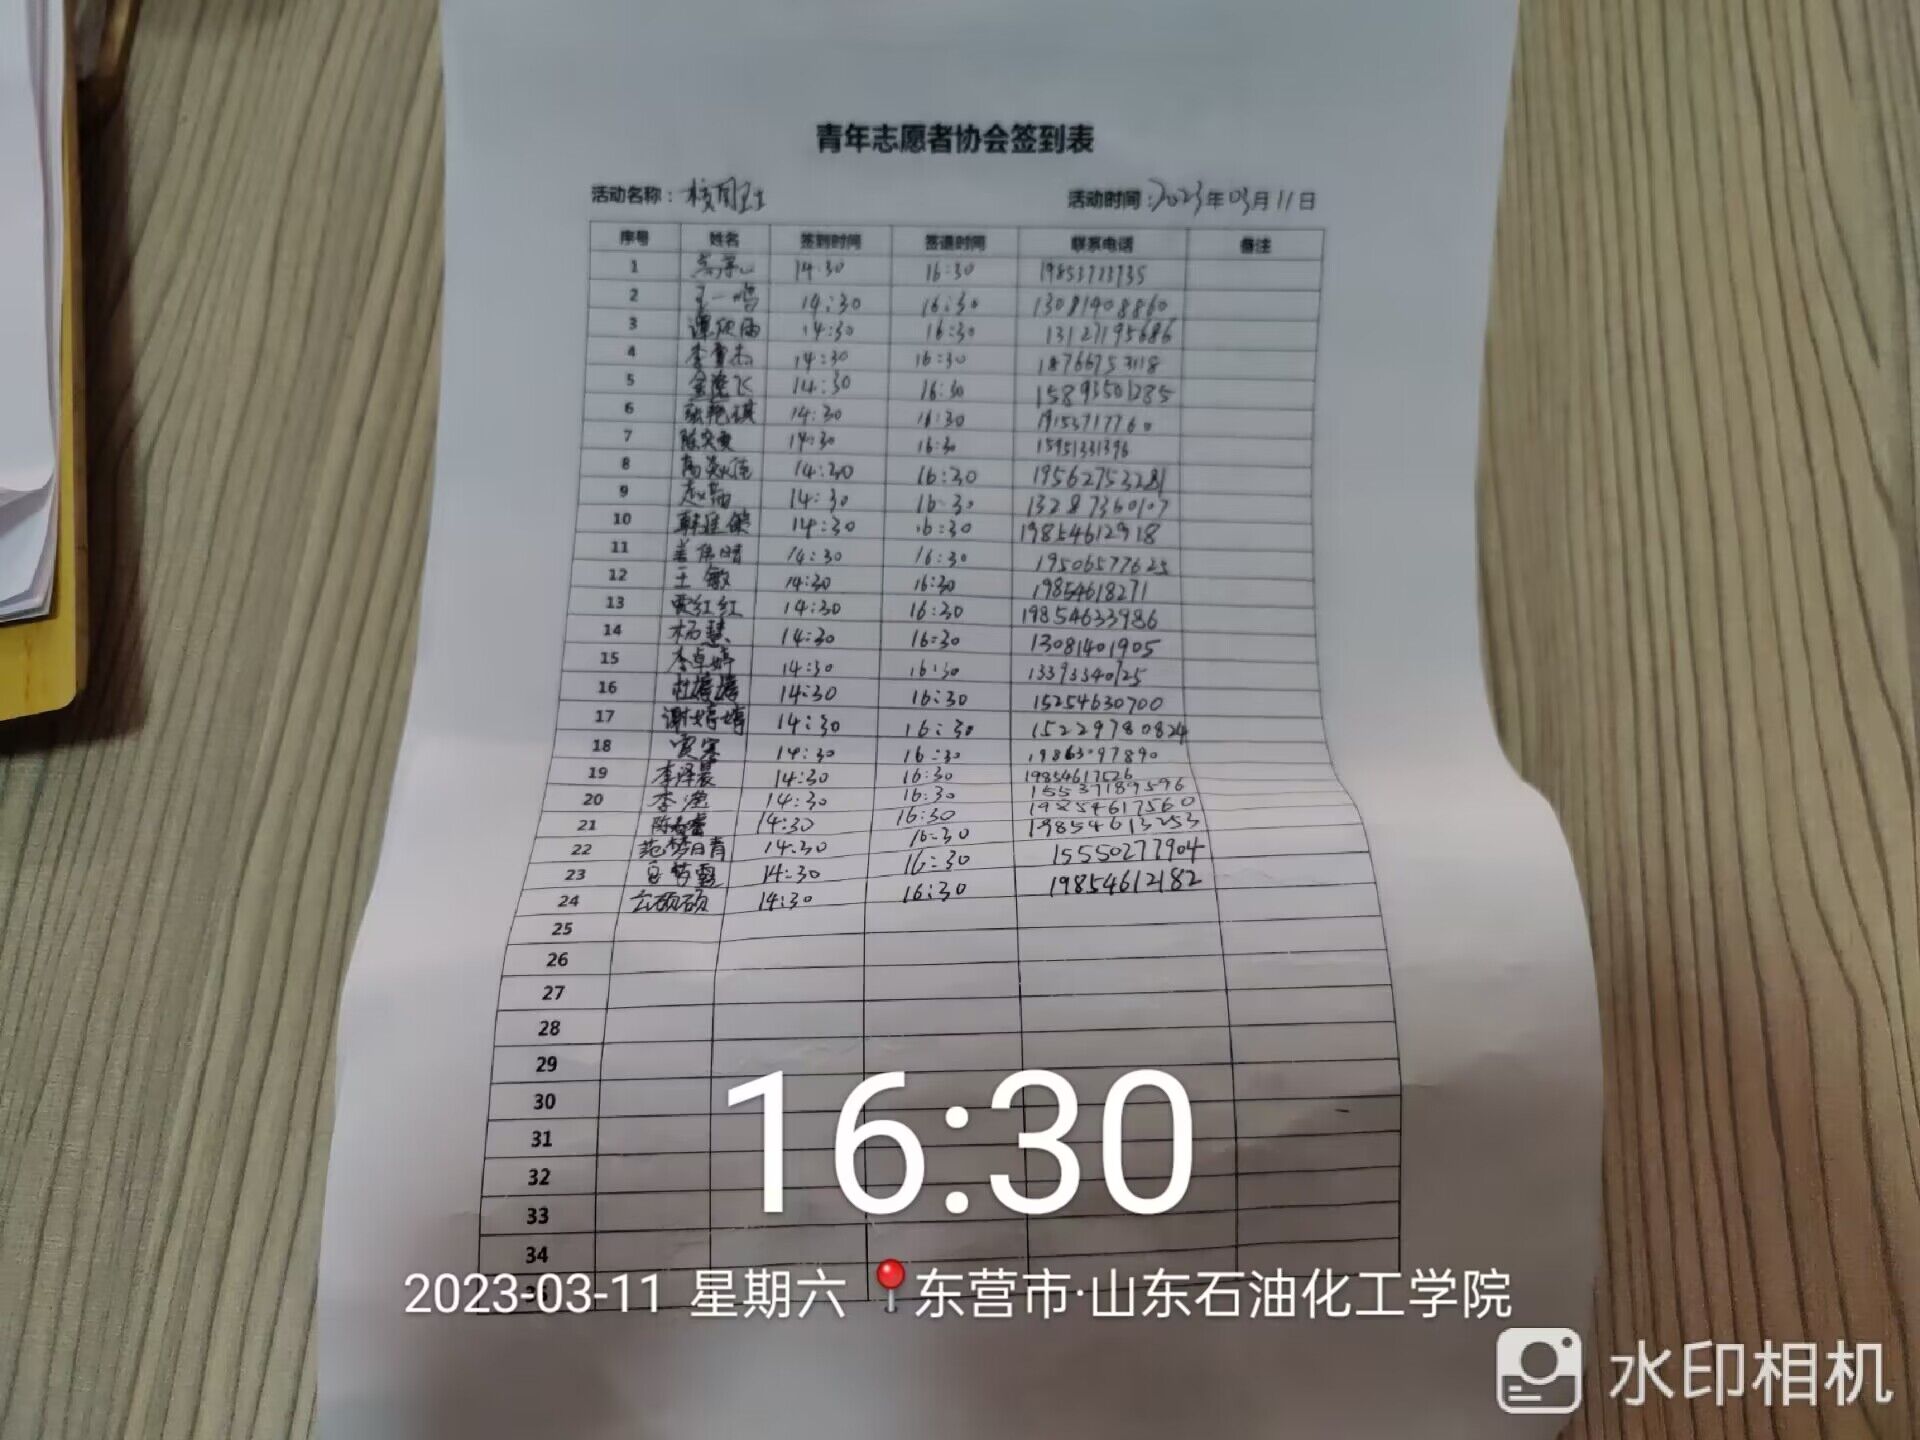 青年志愿者协会签到表
活动名称：校园卫生 活动时间：2023年03月11日
序号 姓名 签到时间 签退时间 联系电话 备注
1 14:30 16:30
2 王一鸣 14:30 16:30 13081408860
3 14:30 16:30 13127195686
4 李雪杰 14:30 16:30
5 金隆飞 14:30 16:30 15893501285
6 张艳琪 14:30 16:30 19153717760
7 14:30 16:30 15951331396
8 14:30 16:30 19562753281
9 14:30 16:30 13287360107
10 14:30 16:30 19854612918
11 姜伟晴 14:30 16:30 19506577625
12 王敏 14:30 16:30 19854618271
13 贾红红 14:30 16:30 19854633986
14 杨慧 14:30 16:30 13081401905
15 李卓婷 14:30 16:30 13393340125
16 14:30 16:30 15254630700
17 谢婷婷 14:30 16:30 15229780824
18 14:30 16:30 19863097890
19 李泽晨 14:30 16:30 19854617526
20 李莹 14:30 16:30 15537189596
21 14:30 16:30 19854617560
22 范梦青 14:30 16:30 19854613253
23 14:30 16:30 15550277904
24 14:30 16:30 19854612182
25
26
27
28
29
30
31
32
33
34
35
16:30
2023-03-11 星期六 东营市·山东石油化工学院
水印相机